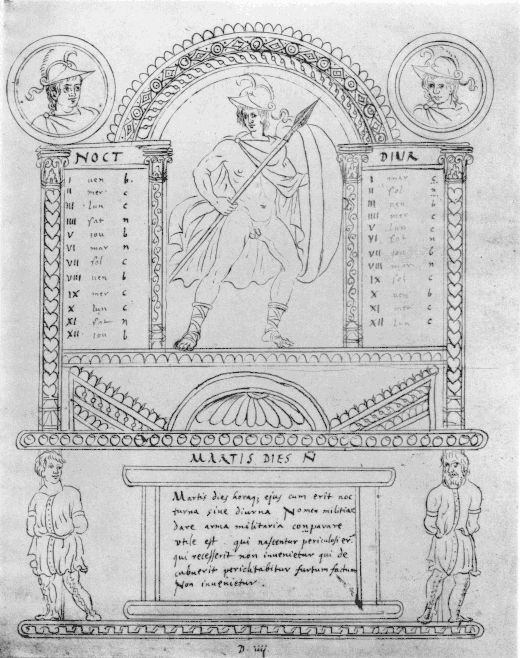 NOCT
I uen b
II mer c
III lun c
IIII sat n
V iou b
VI mar n
VII sol c
VIII uen b
IX mer c
X lun c
XI sat n
XII iou b
DIUR
I mar
II sol
III lun c
IIII mer c
V lun c
VI sat n
VII iou b
VIII mar n
IX sol c
X uen b
XI mer c
XII lun c
MARTIS DIES N
Martis dies horaq; ejus cum erit noc
turna siue diurna Nomen militiae
dare arma militaria conparare
vtile est . qui nascentur periculosi er
qui recesserit non invenietur qui de
cubuerit periclitabitur furtum factum
Non invenietur .
D. iiij.